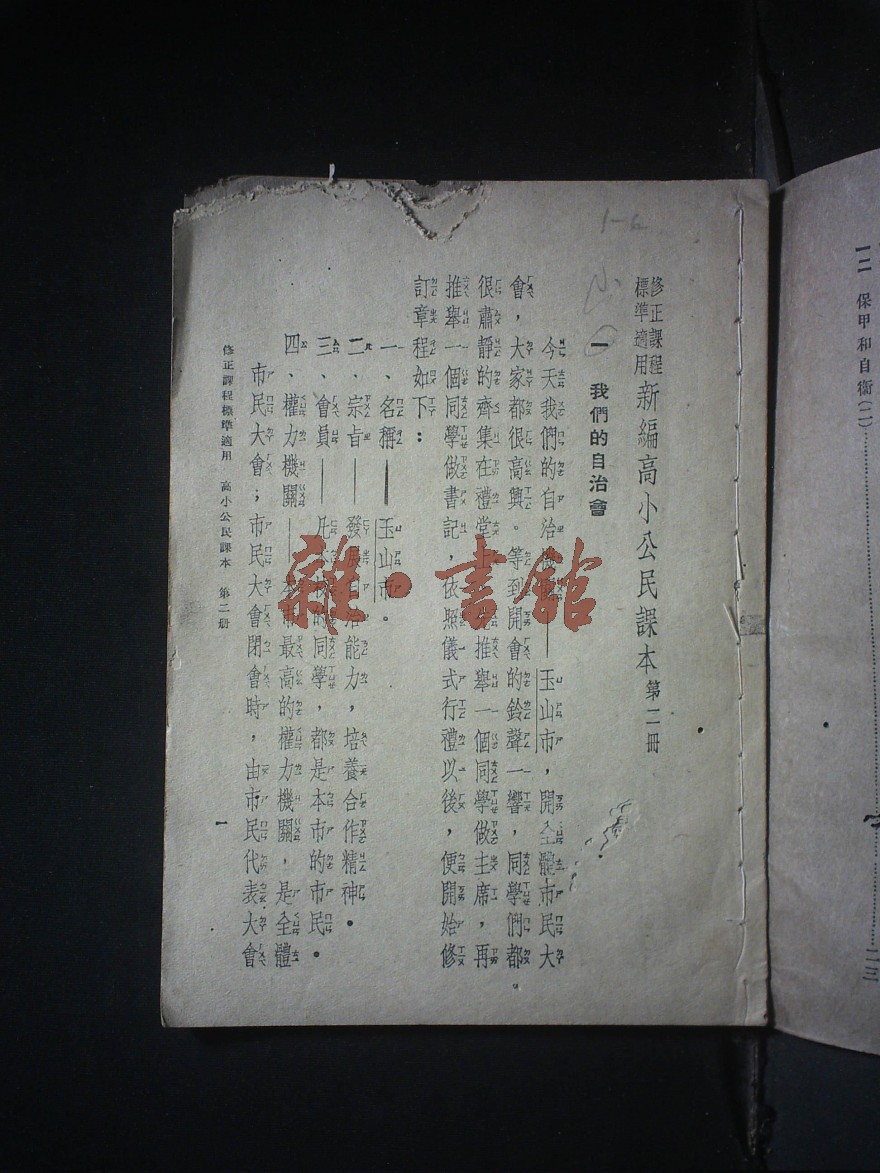 一二 保甲和自衛(二)……………………二三
1-6
修正課程標準適用 新編高小公民課本 第二冊
一 我們的自治會
今天我們的自治——玉山市,開全體市民大
會,大家都很高興。等到開會的鈴聲一響,同學們都
很肅靜的齊集在禮堂推舉一個同學做主席,再
推舉一個同學做書記,依照儀式行禮以後,便開始修
訂章程如下:
一、名稱——玉山市。
二、宗旨——發展自治能力,培養合作精神。
三、會員——凡本校的同學,都是本市的市民。
四、權力機關——本市最高的權力機關,是全體
市民大會;市民大會閉會時,由市民代表大會
修正課程標準適用 高小公民課本 第二冊
一
雜·書館